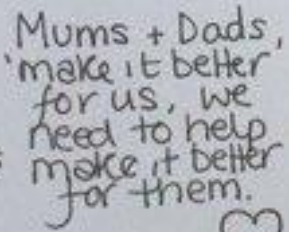 Mums + Dads,
'make it better'
for us, we
need to help
make it better
for them.